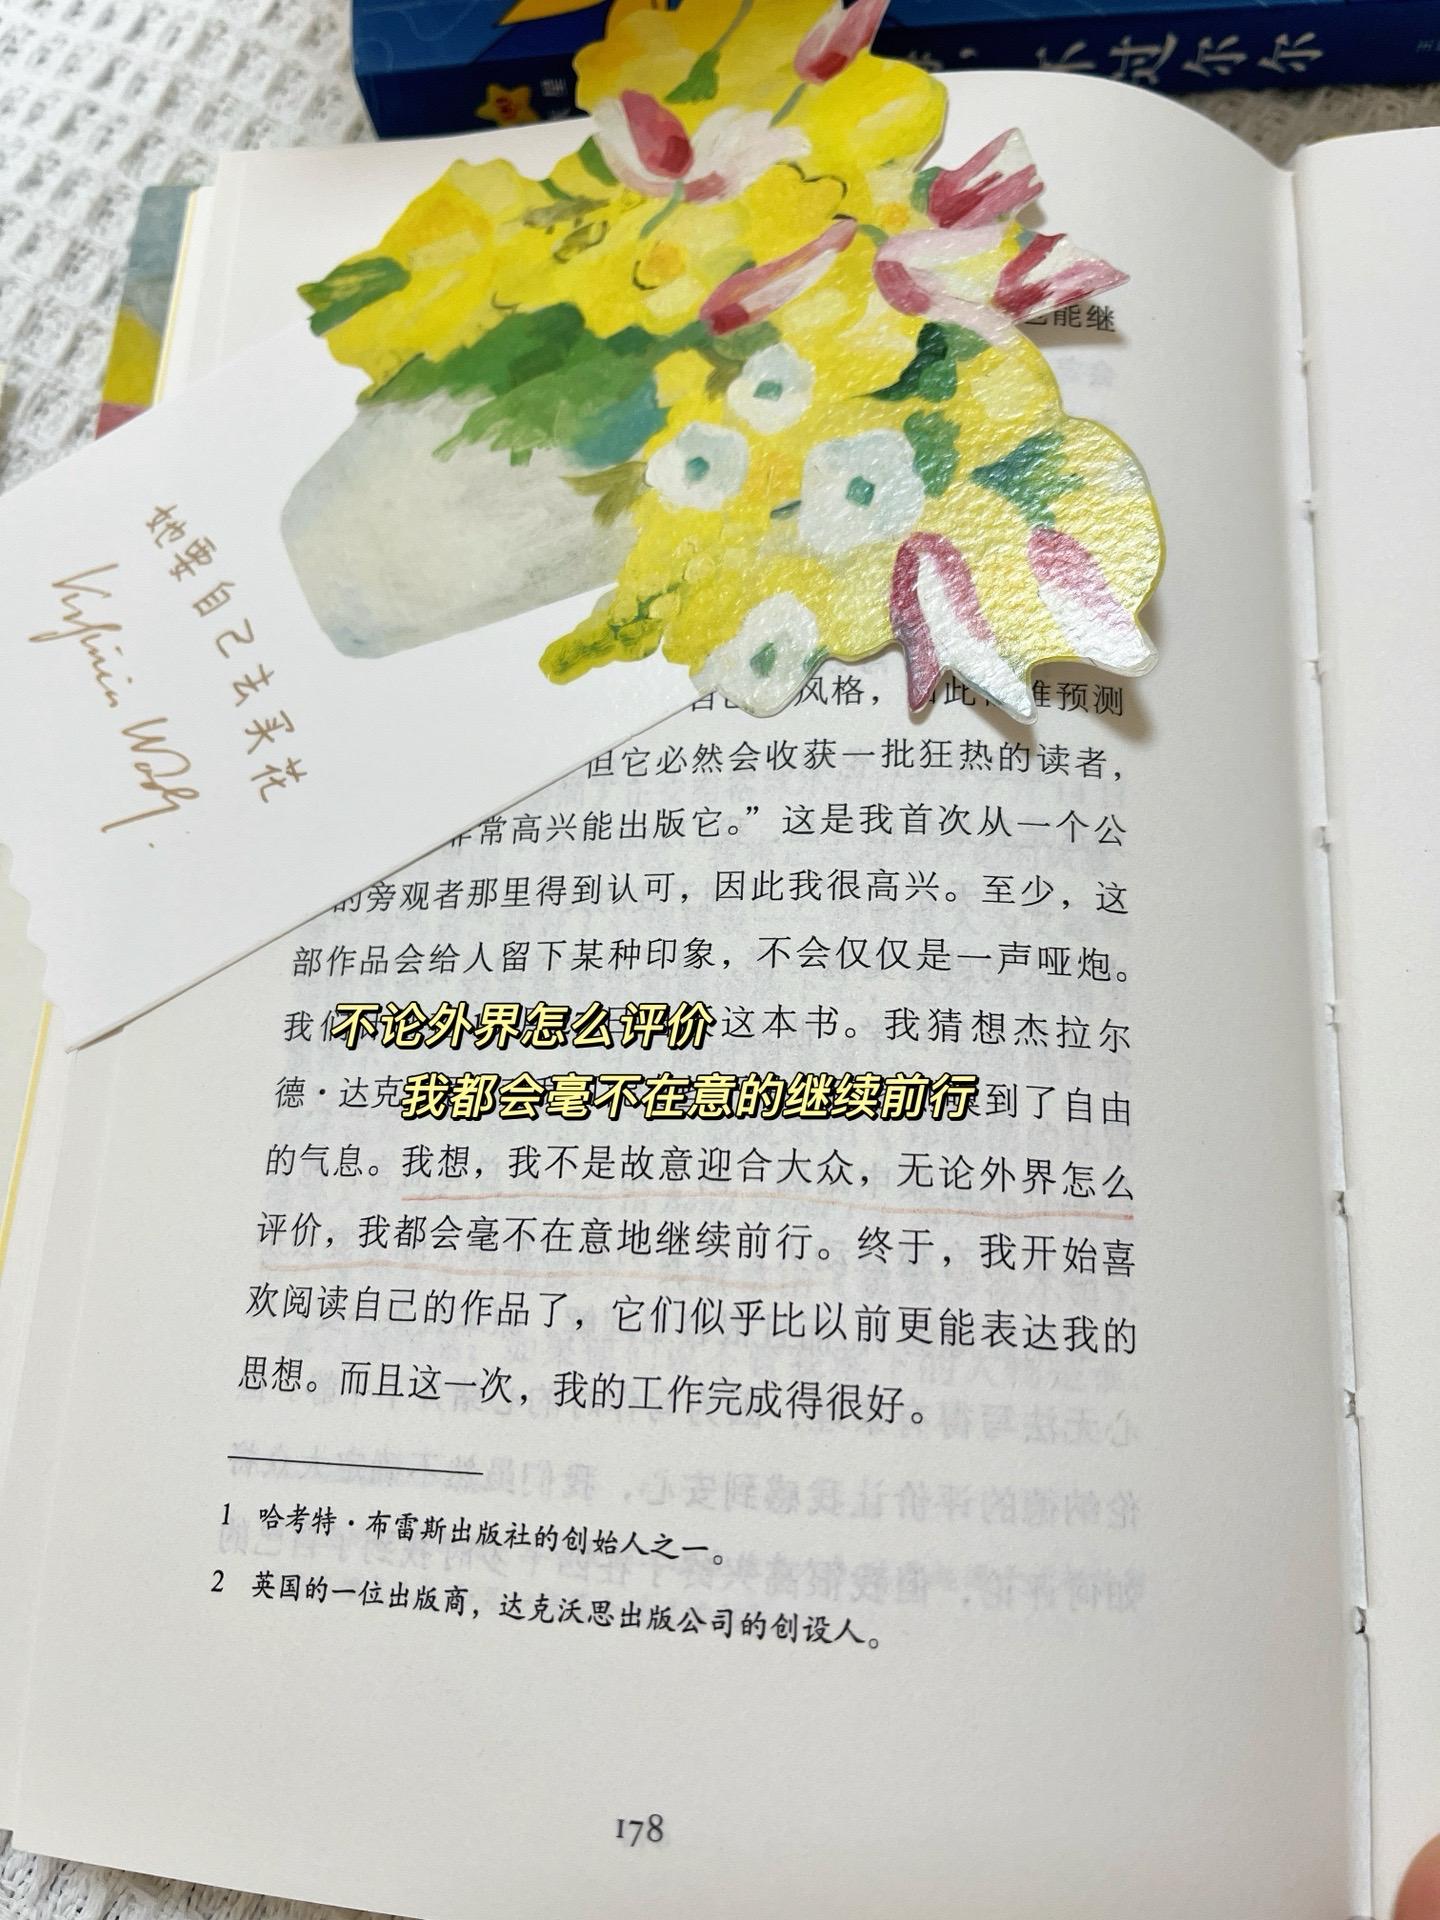 不过尔尔
能继
她要自己去买花
Virginia Woolf
风格，此 难预测
但它必然会收获一批狂热的读者，
非常高兴能出版它。”这是我首次从一个公
的旁观者那里得到认可，因此我很高兴。至少，这
部作品会给人留下某种印象，不会仅仅是一声哑炮。
我们 这本书。我猜想杰拉尔
不论外界怎么评价
德·达克 到了自由
我都会毫不在意的继续前行
的气息。我想，我不是故意迎合大众，无论外界怎么
评价，我都会毫不在意地继续前行。终于，我开始喜
欢阅读自己的作品了，它们似乎比以前更能表达我的
思想。而且这一次，我的工作完成得很好。
1 哈考特·布雷斯出版社的创始人之一。
2 英国的一位出版商，达克沃思出版公司的创设人。
178